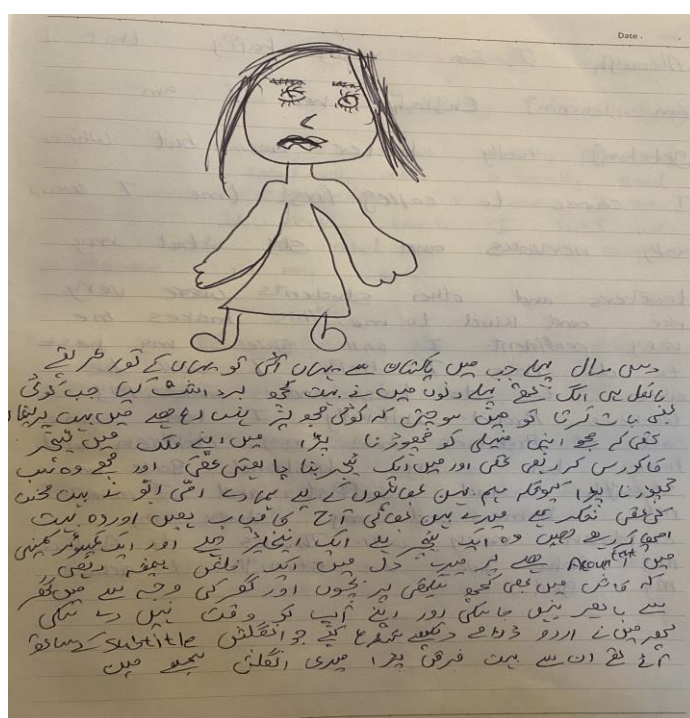 Date .
دس سال پہلے جب میں پاکستان سے یہاں آئی تو یہاں کے طور طریقے
بالکل ہی الگ تھے پہلے دنوں میں نے بہت کچھ برداشت کیا جب کوئی
بھی بات کرتا تو میں سوچتی کہ کوئی مجھ پر ہنس رہا ہے میں بہت پریشان
تھی کے مجھے اپنی فیملی کو چھوڑنا پڑا میں اپنے ملک میں ٹیچر
کا کورس کر رہی تھی اور میں ایک ٹیچر بننا چاہتی تھی اور مجھے وہ سب
چھوڑنا پڑا کیونکہ ہم بہن بھائیوں کے لیے ہمارے امی ابو نے بہت محنت
کی تھی شکر ہے میرے بہن بھائی آج کامیاب ہیں اور وہ بہت
اچھا کر رہے ہیں وہ ایک ٹیچر ہے ایک انجینئر ہے اور ایک کمپیوٹر کمپنی
میں Acountent ہے پر میرے دل میں ایک خلش ہمیشہ رہتی
کہ کاش میں بھی کچھ سیکھتی پر بچوں اور گھر کی وجہ سے میں گھر
سے باہر نہیں جا سکی اور اپنے آپ کو وقت نہیں دے سکی
پھر میں نے اردو ڈرامے دیکھنے شروع کیے جو انگلش Subtitle کے ساتھ
آتے تھے ان سے بہت فرق پڑا میری انگلش بہتر میں